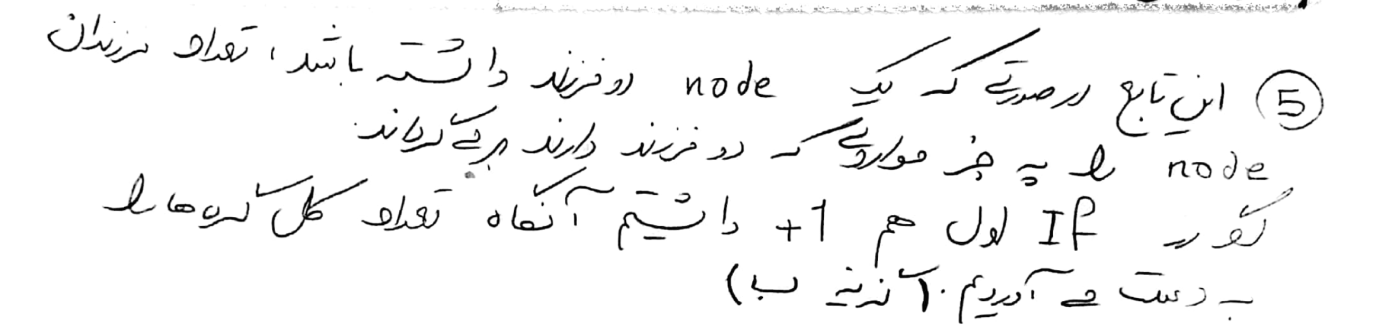 ⑤ این تابع در صورتی که یک node دو فرزند داشته باشد، تعداد فرزندان
node را به جز مواردی که دو فرزند دارند برمی گرداند.
در If اول هم 1+ داشتیم آنگاه تعداد کل گره ها را
به دست می آوردیم. (گزینه ب)